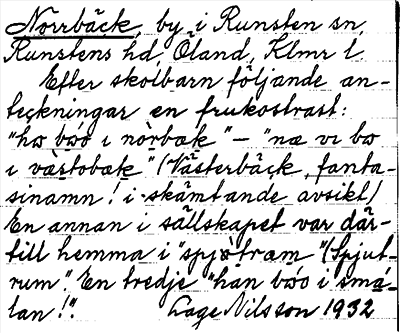 Norrbäck, by i Runsten sn,
Runstens hd, Öland, Klmr l.
Efter skolbarn följande an-
teckningar en frukostrast:
"hɷ bɷo ı nòrbæk" — "næ vı bɷ
i væ̀rtobæk" (Västerbäck, fanta-
sinamn! i skämtande avsikt)
En annan i sällskapet var där-
till hemma i "spjø̀tram" (Spjut-
rum". En tredje "han bɷo i smá-
lan!".
Lage Nilsson 1932